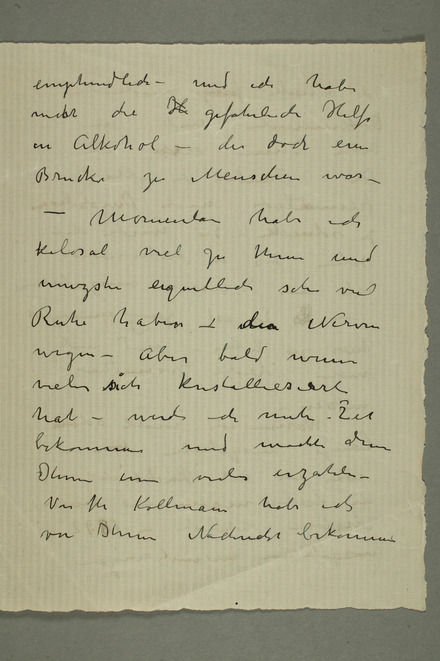 empfindlich – und ich habe
nicht die H gefährliche Hilfe
im Alkohol – die doch eine
Brücke zu Menschen war –
– Momentan habe ich
kolosal viel zu thun und
müsste eigentlich sehr viel
Ruhe haben – der Nerven
wegen – Aber bald wenn
vieles sich kristallisiert
hat – werde ich mehr Zeit
bekommen und möchte dann
Ihnen vieles erzählen –
Von Kollmann habe ich
von Ihnen Nachricht bekommen